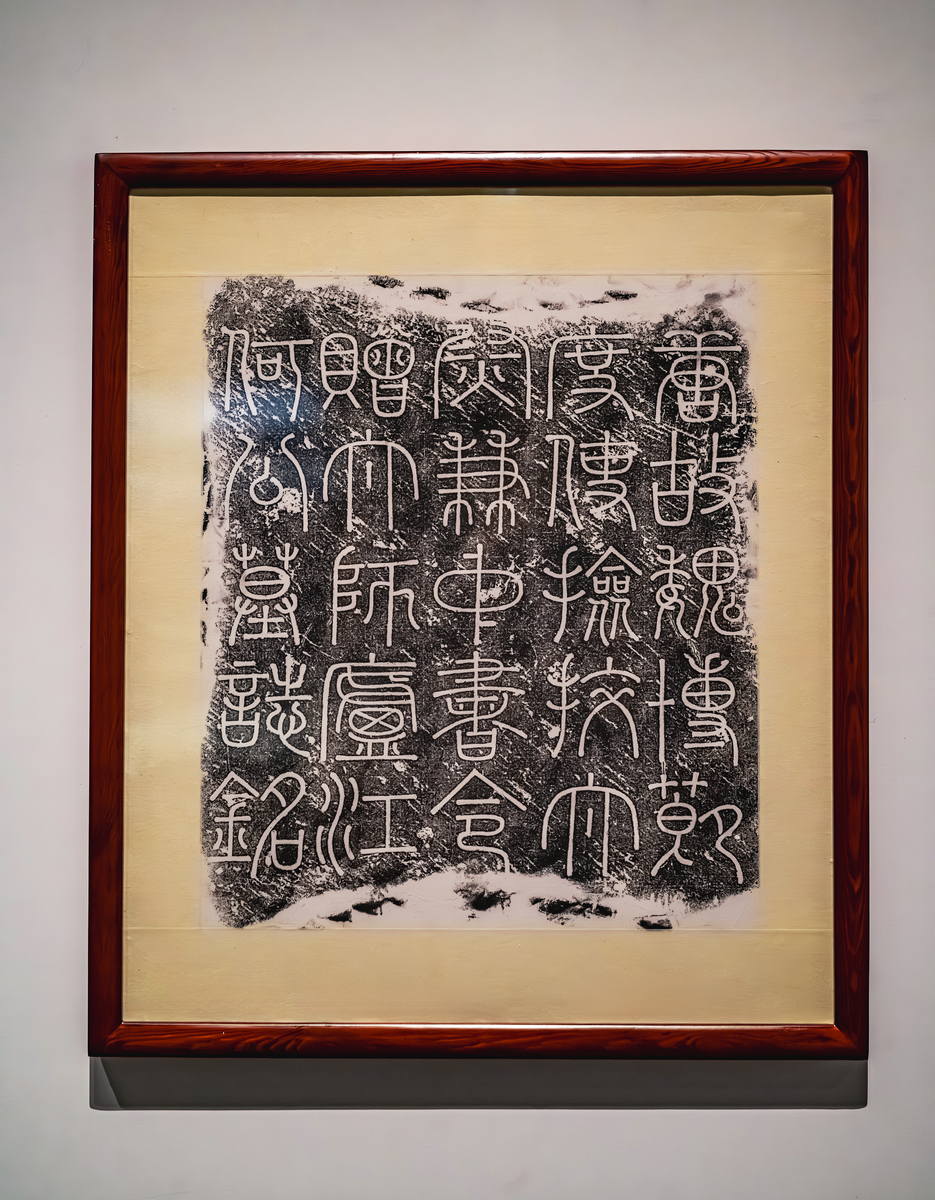 唐故魏博莭
度使撿挍太
尉兼中書令
贈太師廬江
何公墓誌銘